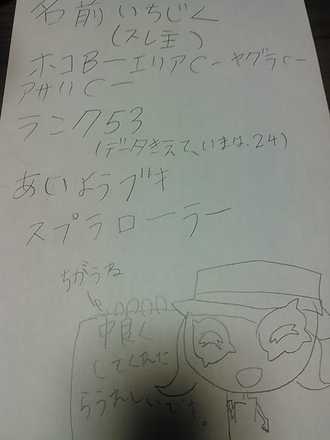 名前 いちじく
(スレ主)
ホコB－エリアC－ヤグラC－
アサリC－
ランク53
(データきえて、いまは、24)
あいようブキ
スプラローラー
ちがうね
中良く
してくれた
らうれしいです。